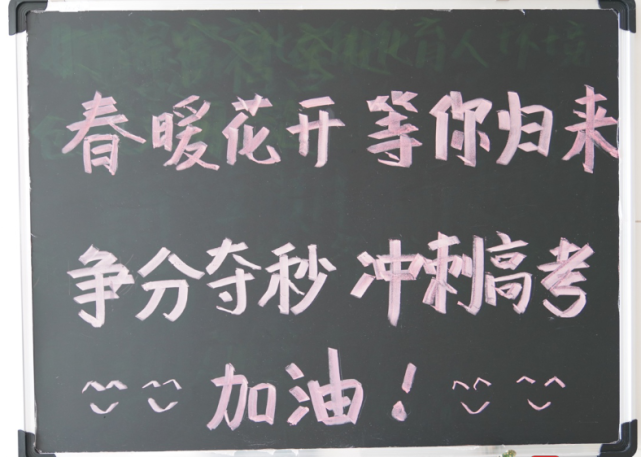 春暖花开 等你归来
争分夺秒 冲刺高考
加油！